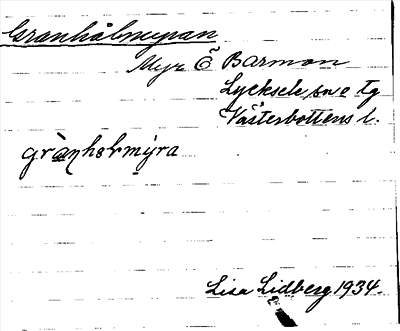 Granholmmyran
Myr Ö Barmon
Lycksele sn o tg
Västerbottens l.
grànhołmýra
Lisa Lidberg 1934.